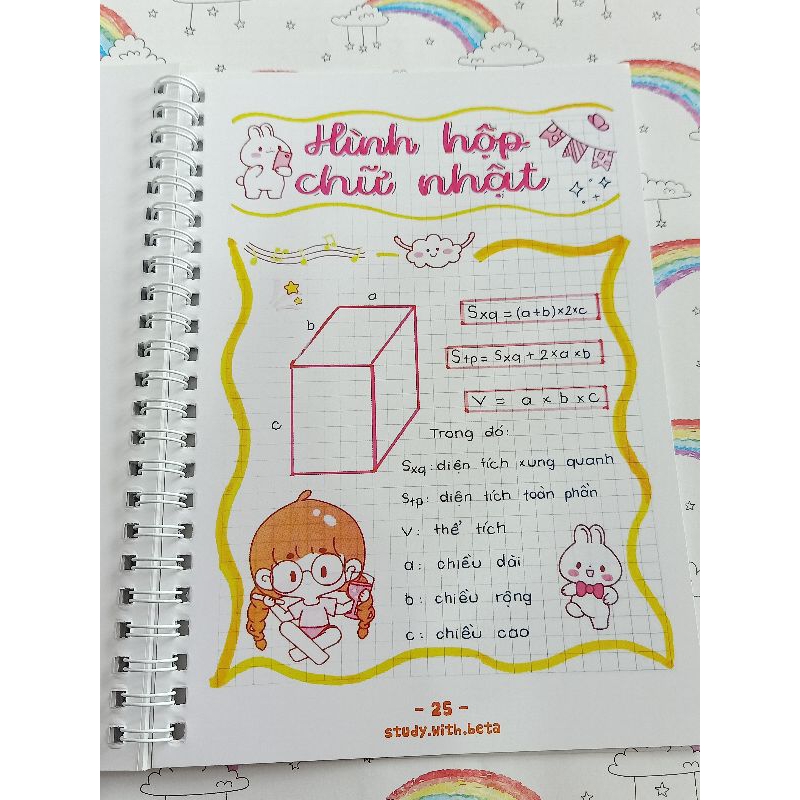 Hình hộp
chữ nhật
a
b
c
Sxq = (a+b)×2×c
Stp = Sxq + 2×a×b
V = a × b × c
Trong đó:
Sxq: diện tích xung quanh
Stp: diện tích toàn phần
V: thể tích
a: chiều dài
b: chiều rộng
c: chiều cao
- 25 -
study.with.beta